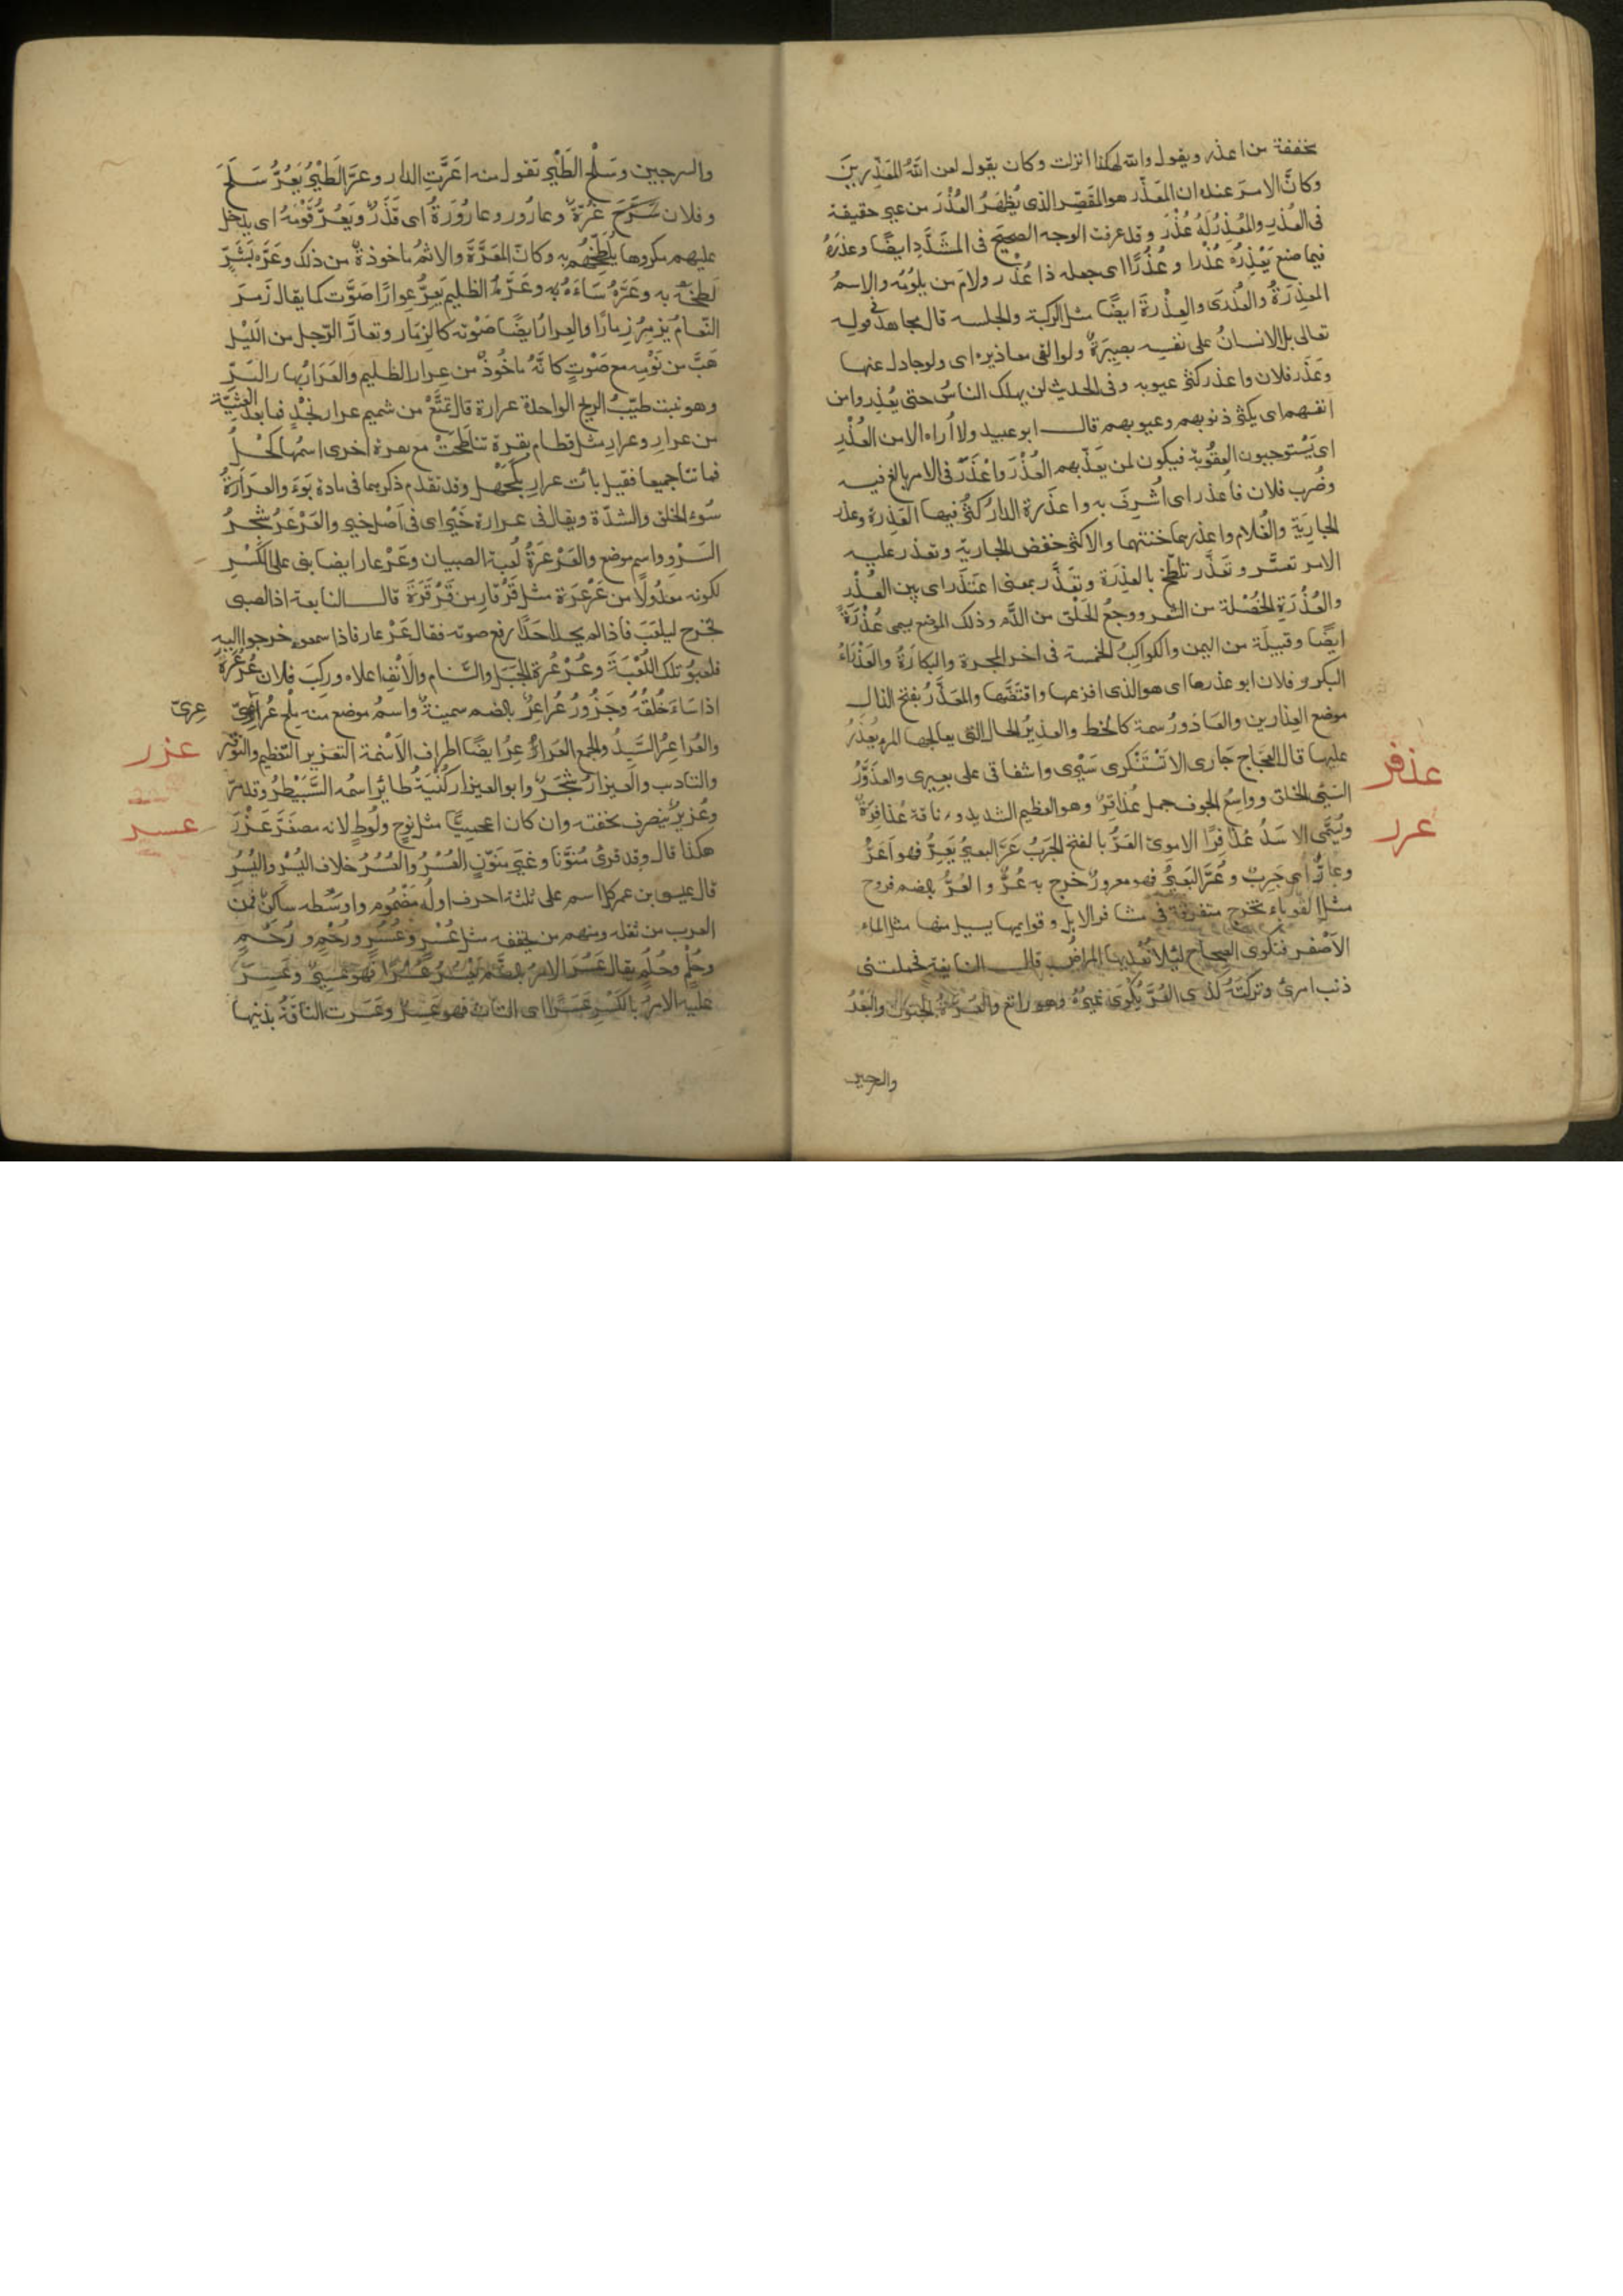 مخففة من اعذر ويقول والله لهكذا انزلت وكان يقول لعن اللهُ المُعَذِّرِينَ
وكانَّ الامرَ عنده ان المعَذِّر هو المقَصِّر الذى يُظهَرُ العُذْرَ من غير حقيقة
فى العُذرِ والمُعْذِرُ لَهُ عُذْرٌ وقد عرفت الوجه الصحيح فى المشَدَّدِ ايضًا وعذرَهُ
فيما صنع يَعْذِرُهُ عُذْرا وعُذُرًا اى جعله ذا عُذْر ولامَ من يلُومُه والاسمُ
المعذِرَةُ والعُذْرَى والعِذْرَة ايضًا مثل الركبة والجلسه قال مجاهد فى قوله
تعالى بل الانسانُ على نفسه بصيرةٌ ولو القى معاذيره اى ولو جادل عنها
وعَذَر فلان واعذر كثر عيوبه وفى الحديث لن يهلك الناسُ حتى يُعْذِروا من
انفسهم اى يكثر ذنوبهم وعيوبهم قال ابو عبيد ولا اُراه الا من العُذْرِ
اى يَسْتوجبون العقُوبَة فيكون لمن يعَذّبهم العُذْرَ واعْذَرَ فى الامر بالغ فيه
وضُرب فلان فاُعذر اى اُشرِفَ به واعذَرة الدار كثُر فيها العَذِرة وعذر
الجارِيَة والغُلام واعذرهما ختنهما والاكثر خفض الجارية وتعذر عليه
الامر تعسّر وتَعَذَّر تلطّخ بالعذِرَة وتعَذَّر بمعنى اعتَذَر اى بين العُذْر
والعُذْرَة الخُصْلة من الشعر ووجعُ الحَلْق من الدَّم وذلك الموضع يسمى عُذْرَةً
ايضًا وقبيلَة من اليمن والكواكِبُ الخمسة فى اخر المجرة والبكارَةُ والعَذْرَاءُ
البكر وفلان ابو عذرها اى هو الذى افترعها واقتَضَّها والمعَذَّرُ بفتح الذال
موضع العِذارين والعَاذورُ سمة كالخط والعذيرُ الحال التى يعالجها المرء يُعْذرُ
عليها قال العجّاج جَارى لا تَسْتَنْكرى سَيْرى واشفاقى على بعيرى والعذَوَّرُ
السَيّئ الخلق وواسِعُ الجوف جمل عُذافِرٌ وهو العظيم الشديد وناقة عُذافِرَةٌ
ويُسَمَّى الاسَدُ عُذَافِرًا الاموى العَرُّ بالفتح الجَرَبُ عَرَّ البعيرُ يَعِرُّ فهو اَعَرُّ
وعارٌّ اى جَرِبٌ وعُرَّ البَعيرُ فهو معرورٌ خرج به عُرٌّ والعُرُّ بالضم قروح
مثل القوباء تخرج متفرقة فى مشافر الابل وقوايمها يسيل منها مثل الماء
الاَصْفر فتكوى الصحاح لئلا تُعْديها المراضُ قال النابغة فحملتنى
ذنب امرئ وتركتَهُ كذى العُرِّ يُكوَى غيرُهُ وهو راتع والعُرّةُ الجنون والبَعْرُ
والسرجين
عذفر
عرر
والسرجين وسَلْح الطَيْر تقول منه اعَرَّتِ الدار وعرَّ الطَيْرُ يَعُرُّ سَلَحَ
وفلان عُرَّةٌ وعارُور وعارُورَةُ اى قَذَرٌ ويَعُرُّ قَوْمَهُ اى يدخل
عليهم مكروها يُلَطِّخُهُم به وكانّ المعَرَّةَ والاثمُ ماخوذةٌ من ذلك وعَرَّه بَشَرٍّ
لَطخَهُ به وعَرَّهُ سَاءَهُ به وعَرَّ الظليم يَعِرُّ عِرارًا صَوَّت كما يقال زَمرَ
النّعامُ يَزمِرُ زِمارًا والعِرار ايضًا صَوْته كالزِمَار وتعارَّ الرّجل من اللّيْل
هَبَّ من نَوْمِه مع صَوْتٍ كانَّهُ ماخُوذٌ من عِرار الظليم والعَرَارُ بهار البَرِّ
وهو نبت طيّبُ الريح الواحدة عرارة قال تمَتَّعْ من شميم عرار نجدٍ فما بعد العشيّة
من عرارِ وعرارِ مثل قطام بقرة تناطَحَتْ مع بقرة اخرى اسمُها كَحْلُ
فماتتا جميعا فقيل باءَت عرارِ بكَحْل وقد تقدم ذكرهما فى مادة بَوَءَ والعَرَارَةُ
سُوءُ الخلق والشدّة ويقال فى عرارة خَيْرٍ اى فى اَصْل خيرٍ والعَرْعَرُ شجرُ
السَرْوِ واسم موضع والعَرْعَرَةُ لُعبة الصبيان وعَرْعارِ ايضا بنى على الكَسْرِ
لكونه معدُولًا من عَرْعَرَة مثل قَرْقارِ من قَرْقَرَة قال النابغة اذ الصبى
يخرج ليلعَبَ فاذا لم يجد احَدًا رفع صوته فقال عَرْعار فاذا سمعوه خرجوا اليه
فلعبوُ تلك اللُّعْبَةَ وعُرْعُرة الجَبَل والسَّنام والاَنْفِ اعلاه وركِبَ فلان عُرْعُرَةً
اذا سَاءَ خلُقُهُ وجَزُورٌ عُراعِرٌ بالضم سمينةٌ واسمُ موضع منه مِلْح عُرَاعِرِىٌّ
والعُراعِرُ السَّيِّدُ والجمع العَراعِرُ ايضًا اطراف الاَسْنمة التعزير التعظيم والتوقير
والتاديب والعَيزارُ شجَرٌ وابو العيزار كُنْيَةُ طائرٍ اسمُه السَّبَيْطرُ وقد مرّ
وعُزيرٌ ينصرف لخفته وان كان اعجميًّا مثل نوحٍ ولُوطٍ لانه مصغّر عَزْر
هكذا قال وقد قرئ مُنَوَّنًا وغيرَ منَوّنٍ العُسْرُ والعُسُرُ خلاف اليُسْر واليُسُرِ
قال عيسى بن عمر كل اسم على ثلثة احرف اولُهُ مَضْمُوم واوسَطه ساكنٌ فمن
العرب من ثقله ومنهم من يخففه مثل عُسْر وعُسُر ورُحْمٍ ورُحُمٍ
وحُلْمٍ وحُلُمٍ يقال عَسُرَ الامرُ بالضم يعْسُرُ عُسْرًا فهو عسِيرٌ وعَسِرَ
عليه الامرُ بالكَسْرِ عَسَرًا اى التاث فهو عَسِرٌ وعَسَرت الناقَةُ بذَنبِها
عِرىّ
عزر
عسر